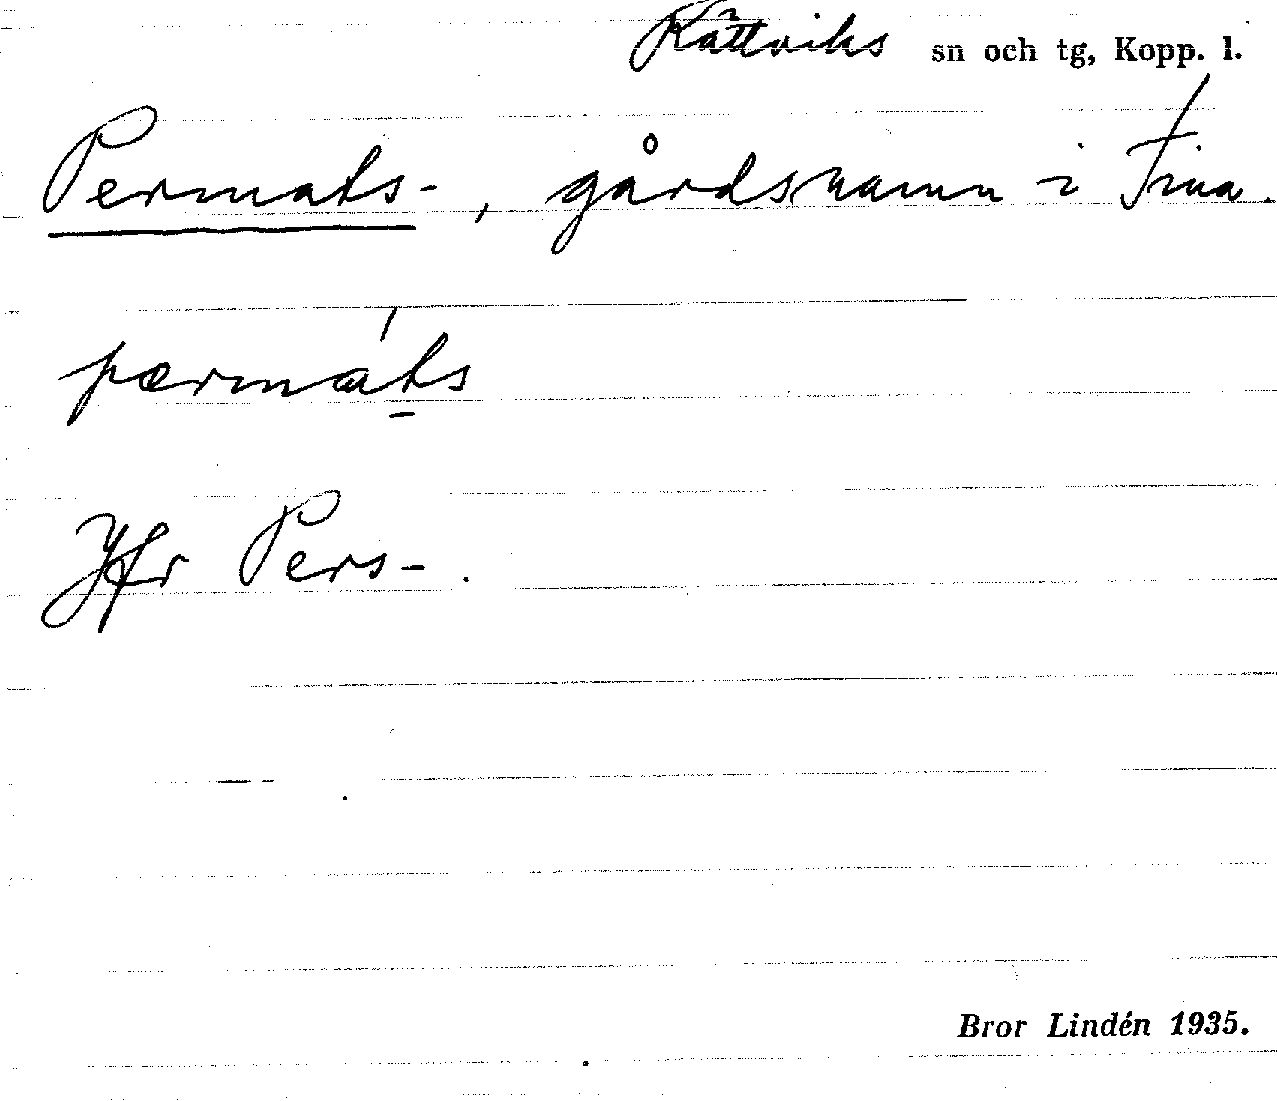 Rättviks sn och tg, Kopp. l.
Permats-, gårdsnamn i Fina.
pærmáts
Jfr Pers-.
Bror Lindén 1935.